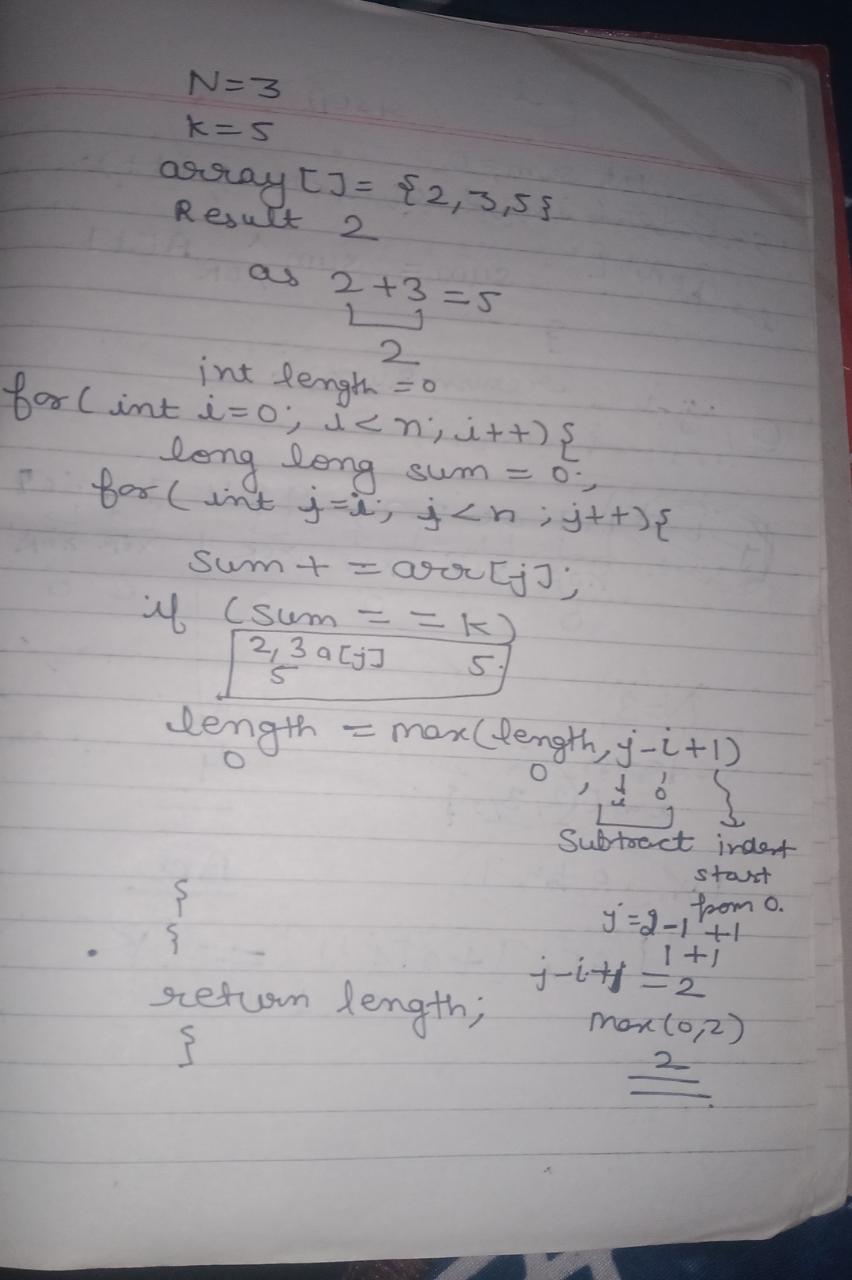 N=3
K=5
array[]= {2,3,5}
Result 2
as 2+3=5
2
int length =0
for( int i=0; i<n; i++){
long long sum = 0;
for( int j=i; j<n ; j++){
sum + = arr[j];
if (sum = = k)
2,3 a[j] 5
5
length = max(length, j-i+1)
0 0 , 1 0
Subtract index
start
from 0.
}
j=2-1 +1
}
1+1
j-i+1 =2
return length;
max(0,2)
}
2